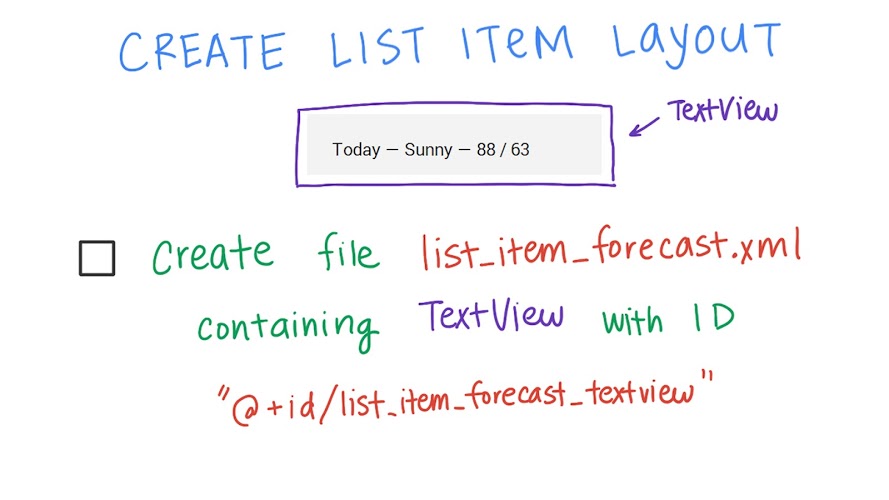 CREATE LIST ITEM LAYOUT
TextView
Today — Sunny — 88 / 63
Create file list_item_forecast.xml
containing TextView with ID
"@+id/list_item_forecast_textview"